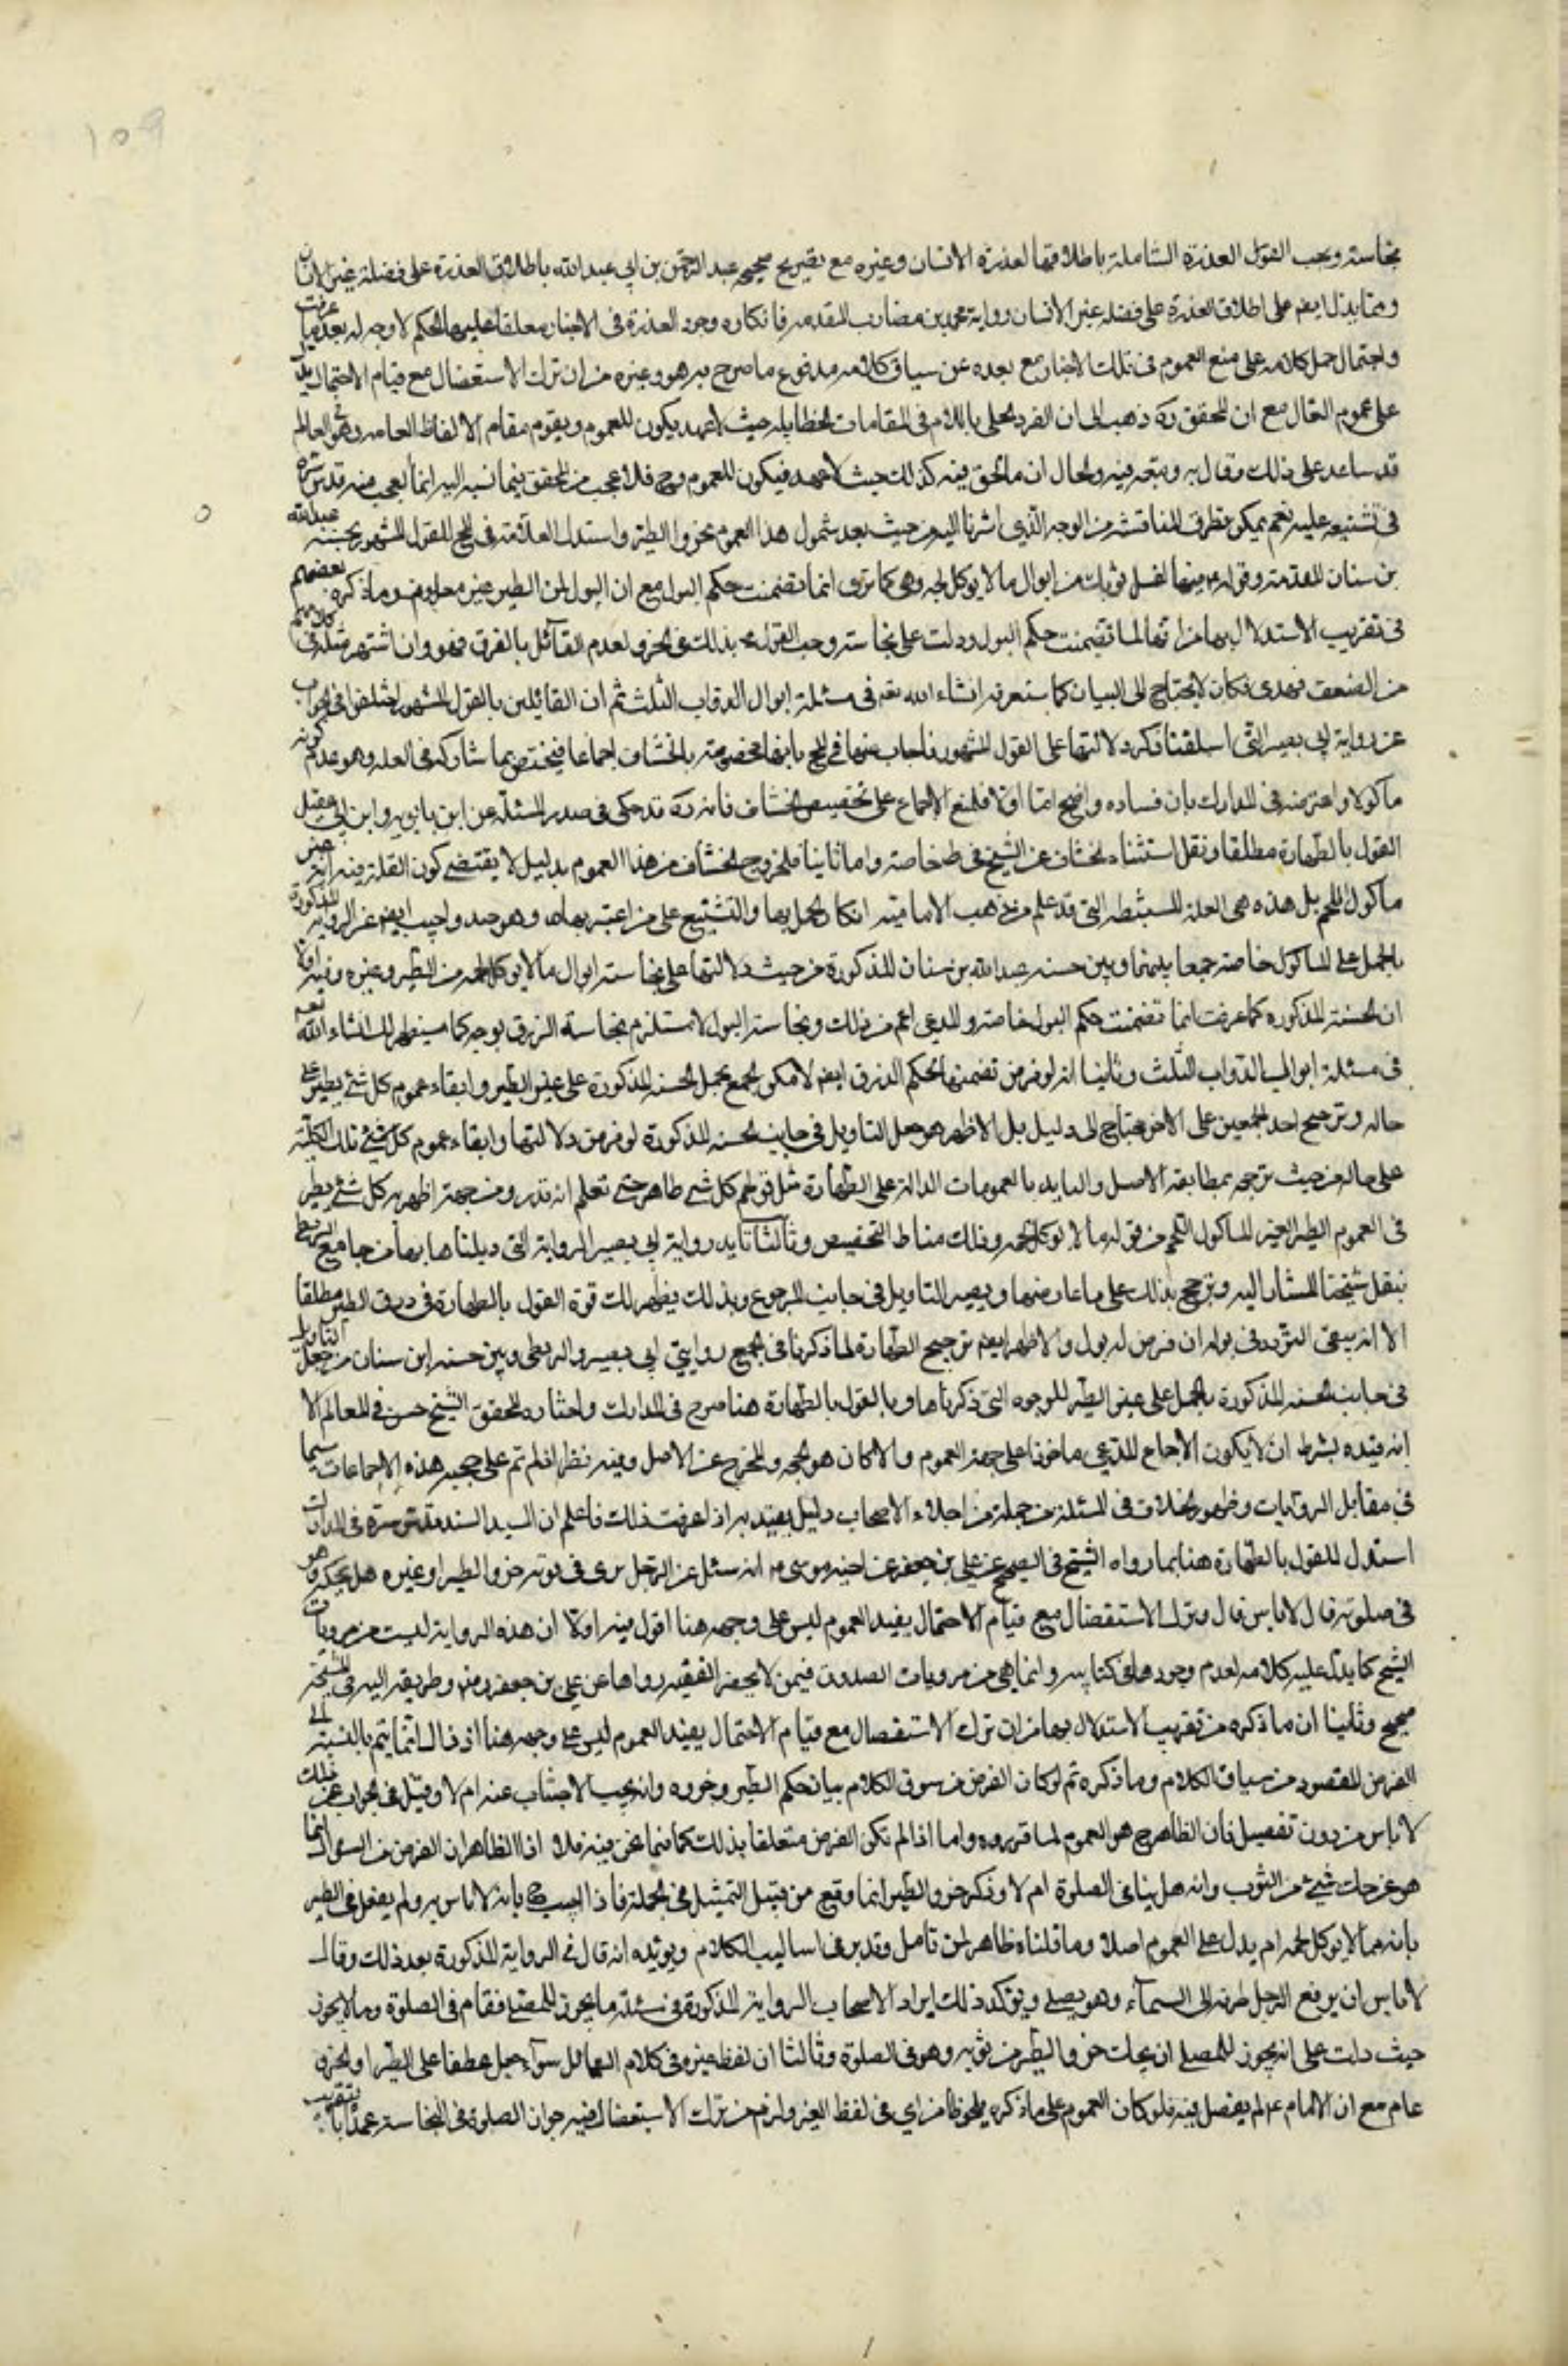 ١٥٩
نجاسته وبحسب القول العذرة الشاملة باطلاقها لعذرة الانسان وغيره مع تصريح صحيحة عبد الرحمن بن ابي عبد الله باطلاق العذرة على فضلة غير الانسان
ومما يدل ايضا على اطلاق العذرة على فضلة غير الانسان رواية محمد بن مضارب المتقدمة فانكاره وجود العذرة في الاخبار معلقا عليها الحكم لا وجه له بعد ما عرفت
واحتمال حمل كلامه على منع العموم في تلك الاخبار مع بعده عن سياق كلامه مدفوع بما صرح به هو وغيره من ان ترك الاستفصال مع قيام الاحتمال يدل
على عموم المقال مع ان المحقق ره ذهب الى ان المفرد المحلى باللام في المقامات الخطابية حيث لا عهد يكون للعموم ويقوم مقام الالفاظ العامة وهو في المعالم
قد ساعد على ذلك وقال به وتبعه فيه والحال ان ما نحن فيه كذلك حيث لا عهد فيكون للعموم وح فلا عجب من المحقق فيما نسبه اليه انما العجب منه قدس سره
في تشنيعه عليه نعم يمكن تطرق المناقشة من الوجه الذي اشرنا اليه من حيث بعد شمول هذا العموم نحو الطير واستدل العلامة في المخ للقول المشهور بحسنة عبد الله
بن سنان المتقدمة وقوله ع فيها اغسل ثوبك من ابوال ما لا يوكل لحمه وهي كما ترى انما تضمنت حكم البول مع ان البول من الطير غير معلوم وما ذكره بعضهم
في تقريب الاستدلال بها من انها لما تضمنت حكم البول ودلت على نجاسته وجب القول بذلك في الخرء لعدم القائل بالفرق فهو وان اشتهر مثله في كلامهم
من الضعف عندي بمكان لا يحتاج الى البيان كما ستعرفه انشاء الله تعه في مسئلة ابوال الدواب الثلث ثم ان القائلين بالقول المشهور اختلفوا في الجواب
عن رواية ابي بصير التي اسلفنا ذكر دلالتها على القول المشهور فاجاب عنها في المخ بانها مخصوصة بالخشاف اجماعا فيختص بما شاركه في العلة وهو عدم كونه
ماكولا واعترضه في المدارك بان فساده واضح اما اولا فلمنع الاجماع على تخصيص الخشاف فانه ره قد حكى في صدر المسئلة عن ابن بابويه وابن ابي عقيل
القول بالطهارة مطلقا ونقل استثناء الخشاف عن الشيخ في ط خاصة واما ثانيا فلخروج الخشاف من هذا العموم بدليل لا يقتضي كون العلة فيه انه غير
ماكول اللحم بل هذه هي العلة المستنبطة التي قد علم من مذهب الامامية انكار العمل بها والتشنيع على من اعتبرها اه وهو جيد واجيب ايضا عن الرواية المذكورة
بالحمل على الماكول خاصة جمعا بينها وبين حسنة عبد الله بن سنان المذكورة من حيث دلالتها على نجاسة ابوال ما لا يوكل لحمه من الطير وغيره وفيه اولا
ان الحسنة المذكورة كما عرفت انما تضمنت حكم البول خاصة والمدعى اعم من ذلك ونجاسة البول لا تستلزم نجاسة الزرق بوجه كما سيظهر لك انشاء الله تعه
في مسئلة ابوال الدواب الثلث وثانيا انه لو فرض تضمنها لحكم الذرق ايضا لامكن الجمع بحمل الحسنة المذكورة على غير الطير وابقاء عموم كل شئ يطير على
حاله وترجيح احد الجمعين على الاخر يحتاج الى دليل بل الاظهر هو جعل التاويل في جانب الحسنة المذكورة لو فرض دلالتها وابقاء عموم كل شئ تلك الكلية
على حاله من حيث ترجحه بمطابقة الاصل والتايد بالعمومات الدالة على الطهارة مثل قولهم كل شئ طاهر حتى تعلم انه قذر ومن جهة اظهرية كل شئ يطير
في العموم الطير الغير الماكول اللحم من قوله ما لا يوكل لحمه وذلك مناط التخصيص وثالثا تايد رواية ابي بصير الرواية التي ذيلناها بها من جامع البزنطي
بنقل شيخنا المشار اليه وترجح بذلك على ما عارضها ويصير التاويل في جانب المرجوع وبذلك يظهر لك قوة القول بالطهارة في ذرق الطير مطلقا
الا انه يبقى التردد في بوله ان فرض له بول والاظهر ايضا ترجيح الطهارة لما ذكرنا في الجمع روايتي ابي بصير والبزنطي وبين حسنة ابن سنان من جعل التاويل
في جانب الحسنة المذكورة بالحمل على غير الطير للوجوه التي ذكرناها وبالقول بالطهارة هنا صرح في المدارك واختاره المحقق الشيخ حسن في المعالم الا
انه قيده بشرط ان لا يكون الاجماع المدعى ماخوذا على جهة العموم والا كان هو الحجة والمخرج عن الاصل وفيه نظر اذ لم تقم على حجية هذه الاجماعات سيما
في مقابل الروايات وظهور الخلاف في المسئلة من جملة من اجلاء الاصحاب دليل يعتد به اذا عرفت ذلك فاعلم ان السيد السند قدس سره في المدارك
استدل للقول بالطهارة هنا بما رواه الشيخ في الصحيح عن علي بن جعفر عن اخيه موسى ع انه سئل عن الرجل يرى في ثوبه خرء الطير او غيره هل يحكه وهو
في صلوته قال لا باس قال وترك الاستفصال مع قيام الاحتمال يفيد العموم ليس على وجهه هنا اقول فيه اولا ان هذه الرواية ليست من مرويات
الشيخ كما يدل عليه كلامه لعدم وجودها في كتابيه وانما هي من مرويات الصدوق فيمن لا يحضره الفقيه رواها عن علي بن جعفر رض وطريقه اليه في المشيخة
صحيح وثانيا ان ما ذكره من تقريب الاستدلال بها من ان ترك الاستفصال مع قيام الاحتمال يفيد العموم ليس على وجهه هنا اذ ذاك انما يتم بالنسبة الى
الغرض المقصود من سياق الكلام وما ذكره تم لو كان الغرض من سوق الكلام بيان حكم الطير وخروه وانه يجب الاجتناب عنه ام لا وقيل في الجواب عن ذلك
لا باس من دون تفصيل فان الظاهر ح هو العموم لما قرروه واما اذا لم تكن الغرض متعلقا بذلك كما فيما نحن فيه فلا اذ الظاهر ان الغرض من السؤال انما
هو عن حك شئ من الثوب وانه هل ينافي الصلوة ام لا وذكر خرو الطير انما وقع من قبيل التمثيل في الجملة فاذا اجيب ح بانه لا باس به ولم يفصل في الطير
بانه مما لا يوكل لحمه ام يدل على العموم اصلا وما قلناه ظاهر لمن تامل وتدبر في اساليب الكلام ويؤيده انه قال في الرواية المذكورة بعد ذلك وقال
لا باس ان يرفع الرجل طرفه الى السماء وهو يصلي ويؤكد ذلك ايراد الاصحاب الرواية المذكورة في مسئلة ما يجوز للمصلي فعله في الصلوة وما لا يجوز
حيث دلت على انه يجوز للمصلي ان يحك خرو الطير من ثوبه وهو في الصلوة وثالثا ان لفظ غيره في كلام السائل سواء جعل عطفا على الطير او الخرو
عام مع ان الامام ع لم يفصل فيه فلو كان العموم على ما ذكره ملحوظا من اي في لفظ الغير ولزم من ترك الاستفصال فيه جواز الصلوة في النجاسة عمدا بتقريب